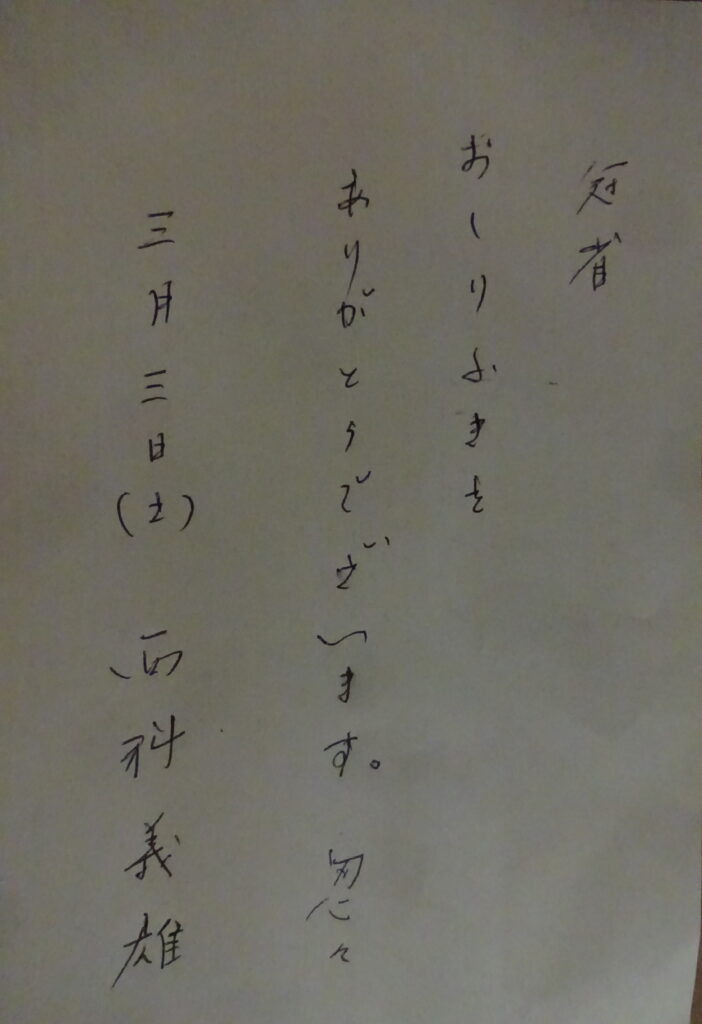 冠省
おしりふきを
ありがとうございます。 怱々
三月三日(土) 西科義雄